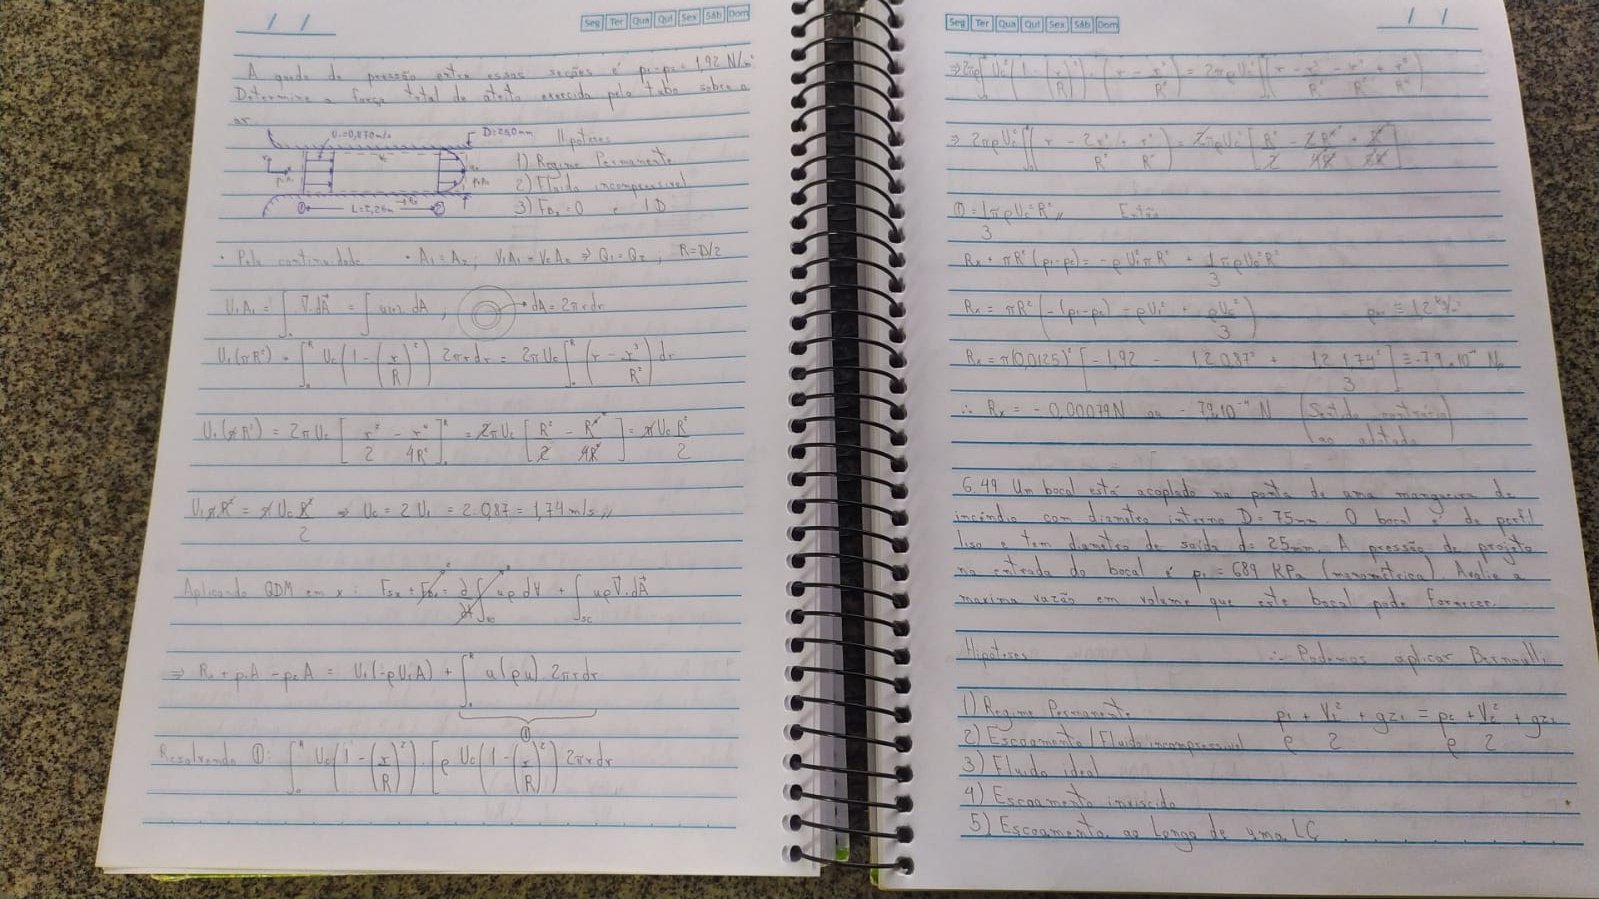 / /
Seg Ter Qua Qui Sex Sáb Dom
A queda de pressão entre essas seções é p₁-p₂ = 1,92 N/m²
Determine a força total de atrito exercida pelo tubo sobre o
ar.
U₁=0,870m/s D=25,0mm Hipóteses
1) Regime Permanente
2) Fluido incompressível
p₂A₂
3) FBx = 0 e 1D
① L=2,25m Rx ②
• Pela continuidade • A₁ = A₂ ; V₁A₁ = V₂A₂ ⇒ Q₁ = Q₂ ; R = D/2
U₁A₁ = ∫ V⃗.dA⃗ = ∫ u(r) dA , → dA = 2πrdr
U₁(πR²) = ∫₀ᴿ Uc(1-(r/R)²) 2πrdr = 2πUc ∫₀ᴿ (r - r³/R²) dr
U₁(πR²) = 2πUc [r²/2 - r⁴/4R²]₀ᴿ = 2πUc [R²/2 - R⁴/4R²] = πUcR²/2
U₁πR² = πUcR²/2 ⇒ Uc = 2U₁ = 2.0,87 = 1,74 m/s //
Aplicando QDM em x: Fsx + FBx = ∂/∂t ∫vc uρ dV + ∫sc uρV⃗.dA⃗
⇒ Rx + p₁A - p₂A = U₁(-ρU₁A) + ∫₀ᴿ u(ρu) 2πrdr
①
Resolvendo ①: ∫₀ᴿ Uc(1-(r/R)²).[ρ Uc(1-(r/R)²) 2πrdr
Seg Ter Qua Qui Sex Sáb Dom
/ /
⇒ 2πρ∫₀ᴿ Uc²(1-(r/R)²).(r - r³/R²) = 2πρUc²∫₀ᴿ(r - r³/R² - r³/R² + r⁵/R⁴)
⇒ 2πρUc²∫₀ᴿ(r - 2r³/R² + r⁵/R⁴) = 2πρUc²[R²/2 - 2R⁴/4R² +
① = 1/3 πρUc²R² // Então
Rx + πR²(p₁-p₂) = -ρU₁²πR² + 1/3 πρUc²R²
Rx = πR²(-(p₁-p₂) - ρU₁² + ρUc²/3) ρar ≅ 1,2 kg/m³
Rx = π(0,0125)² [-1,92 - 1,2.0,87² + 1,2.1,74²/3] ≅ -7,9.10⁻⁴ N//
∴ Rx = -0,00079N ou -7,9.10⁻⁴ N (Sentido contrário
ao adotado)
6.49 Um bocal está acoplado na ponta de uma mangueira de
incêndio com diâmetro interno D= 75mm. O bocal é de perfil
liso e tem diâmetro de saída d= 25mm. A pressão de projeto
na entrada do bocal é p₁ = 689 KPa (manométrica). Avalie a
maxima vazão em volume que este bocal pode fornecer.
Hipóteses ∴ Podemos aplicar Bernoulli
1) Regime Permanente p₁/ρ + V₁²/2 + gz₁ = p₂/ρ + V₂²/2 + gz₂
2) Escoamento/Fluido incompressível
3) Fluido ideal
4) Escoamento inviscido
5) Escoamento ao longo de uma LC